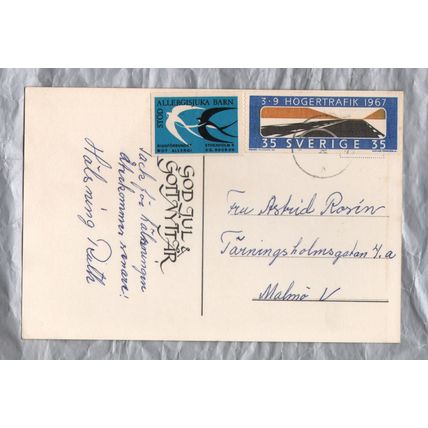 STÖD ALLERGISJUKA BARN
RIKSFÖRBUNDET
MOT ALLERGI
STOCKHOLM 5
PG. 900590
3·9 HÖGERTRAFIK 1967
35 SVERIGE 35
GOD JUL &
GOTT NYTT ÅR
Tack för hälsningen
Återkommer senare.
Hälsning Ruth
Fru Astrid Rosén
Tärningsholmsgatan 4.a
Malmö V